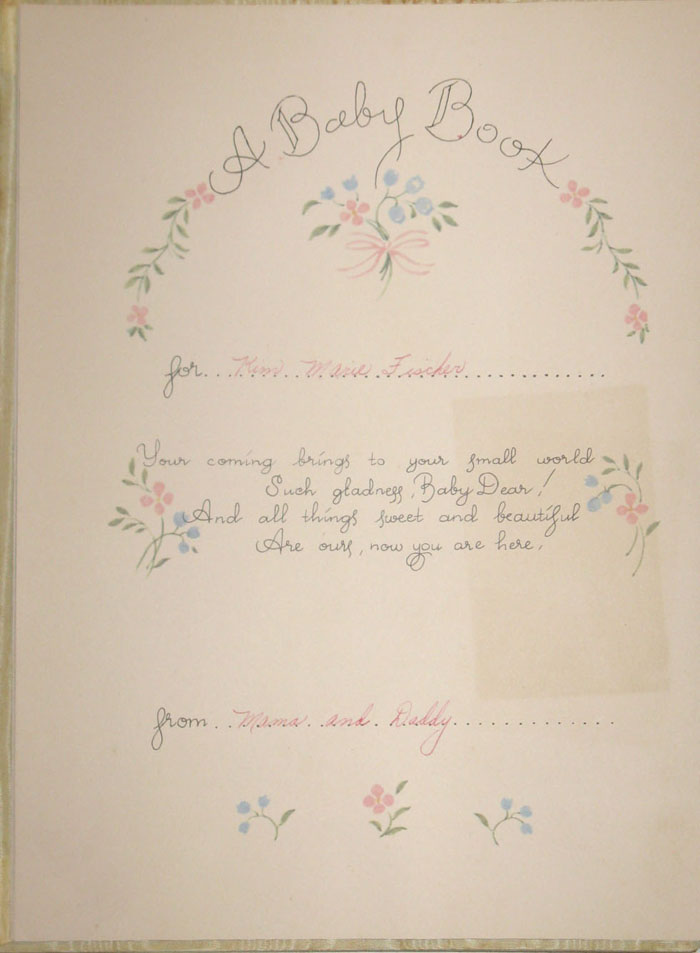 A Baby Book
for... Kim Marie Fischer.............
Your coming brings to your small world
Such gladness, Baby Dear!
And all things sweet and beautiful
Are ours, now you are here.
from.. Mama and Daddy..............